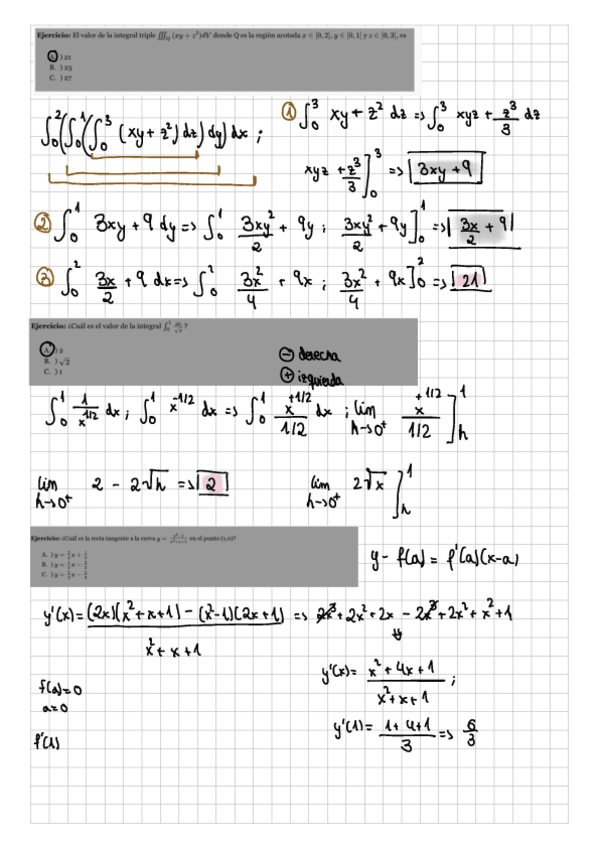 Ejercicio: El valor de la integral triple ∭_Q (xy + z²)dV donde Q es la región acotada x ∈ [0, 2], y ∈ [0, 1] y z ∈ [0, 3], es
A. ) 21
B. ) 23
C. ) 27
∫₀² (∫₀¹ (∫₀³ (xy + z²) dz) dy) dx ;
① ∫₀³ xy + z² dz => ∫₀³ xyz + z³/3 dz
xyz + z³/3 ]₀³ => 3xy + 9
② ∫₀¹ 3xy + 9 dy => ∫₀¹ 3xy²/2 + 9y ; 3xy²/2 + 9y ]₀¹ => 3x/2 + 9
③ ∫₀² 3x/2 + 9 dx => ∫₀² 3x²/4 + 9x ; 3x²/4 + 9x ]₀² => 21
Ejercicio: ¿Cuál es el valor de la integral ∫₀¹ dx/√x ?
A. ) 2
B. ) √2
C. ) 1
⊖ derecha
⊕ izquierda
∫₀¹ 1/x^1/2 dx ; ∫₀¹ x^-1/2 dx => ∫₀¹ x^+1/2 / 1/2 dx ; lim h→0⁺ x^+1/2 / 1/2 ]ₕ¹
lim h→0⁺ 2 - 2√h => 2
lim h→0⁺ 2√x ]ₕ¹
Ejercicio: ¿Cuál es la recta tangente a la curva y = x²-1/x²+x+1 en el punto (1,0)?
y - f(a) = f'(a)(x-a)
y'(x) = (2x)(x²+x+1) - (x²-1)(2x+1) / x²+x+1 => 2x³+2x²+2x - 2x³+2x²+x²+1
y'(x) = x²+4x+1 / x²+x+1 ;
f(a)=0
a=0
y'(1) = 1+4+1 / 3 => 6/3
f'(1)